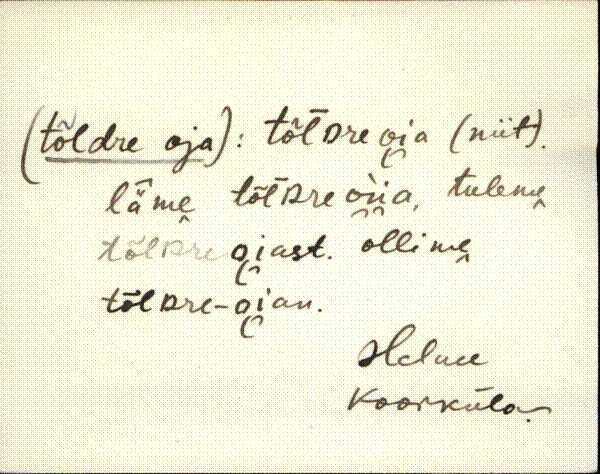 (tõldre oja): tõlDre oja (niit).
läme tõlDre ojja, tuleme
tõlDre ojast. ollime
tõlDre-ojan.
Helme
Koorküla.